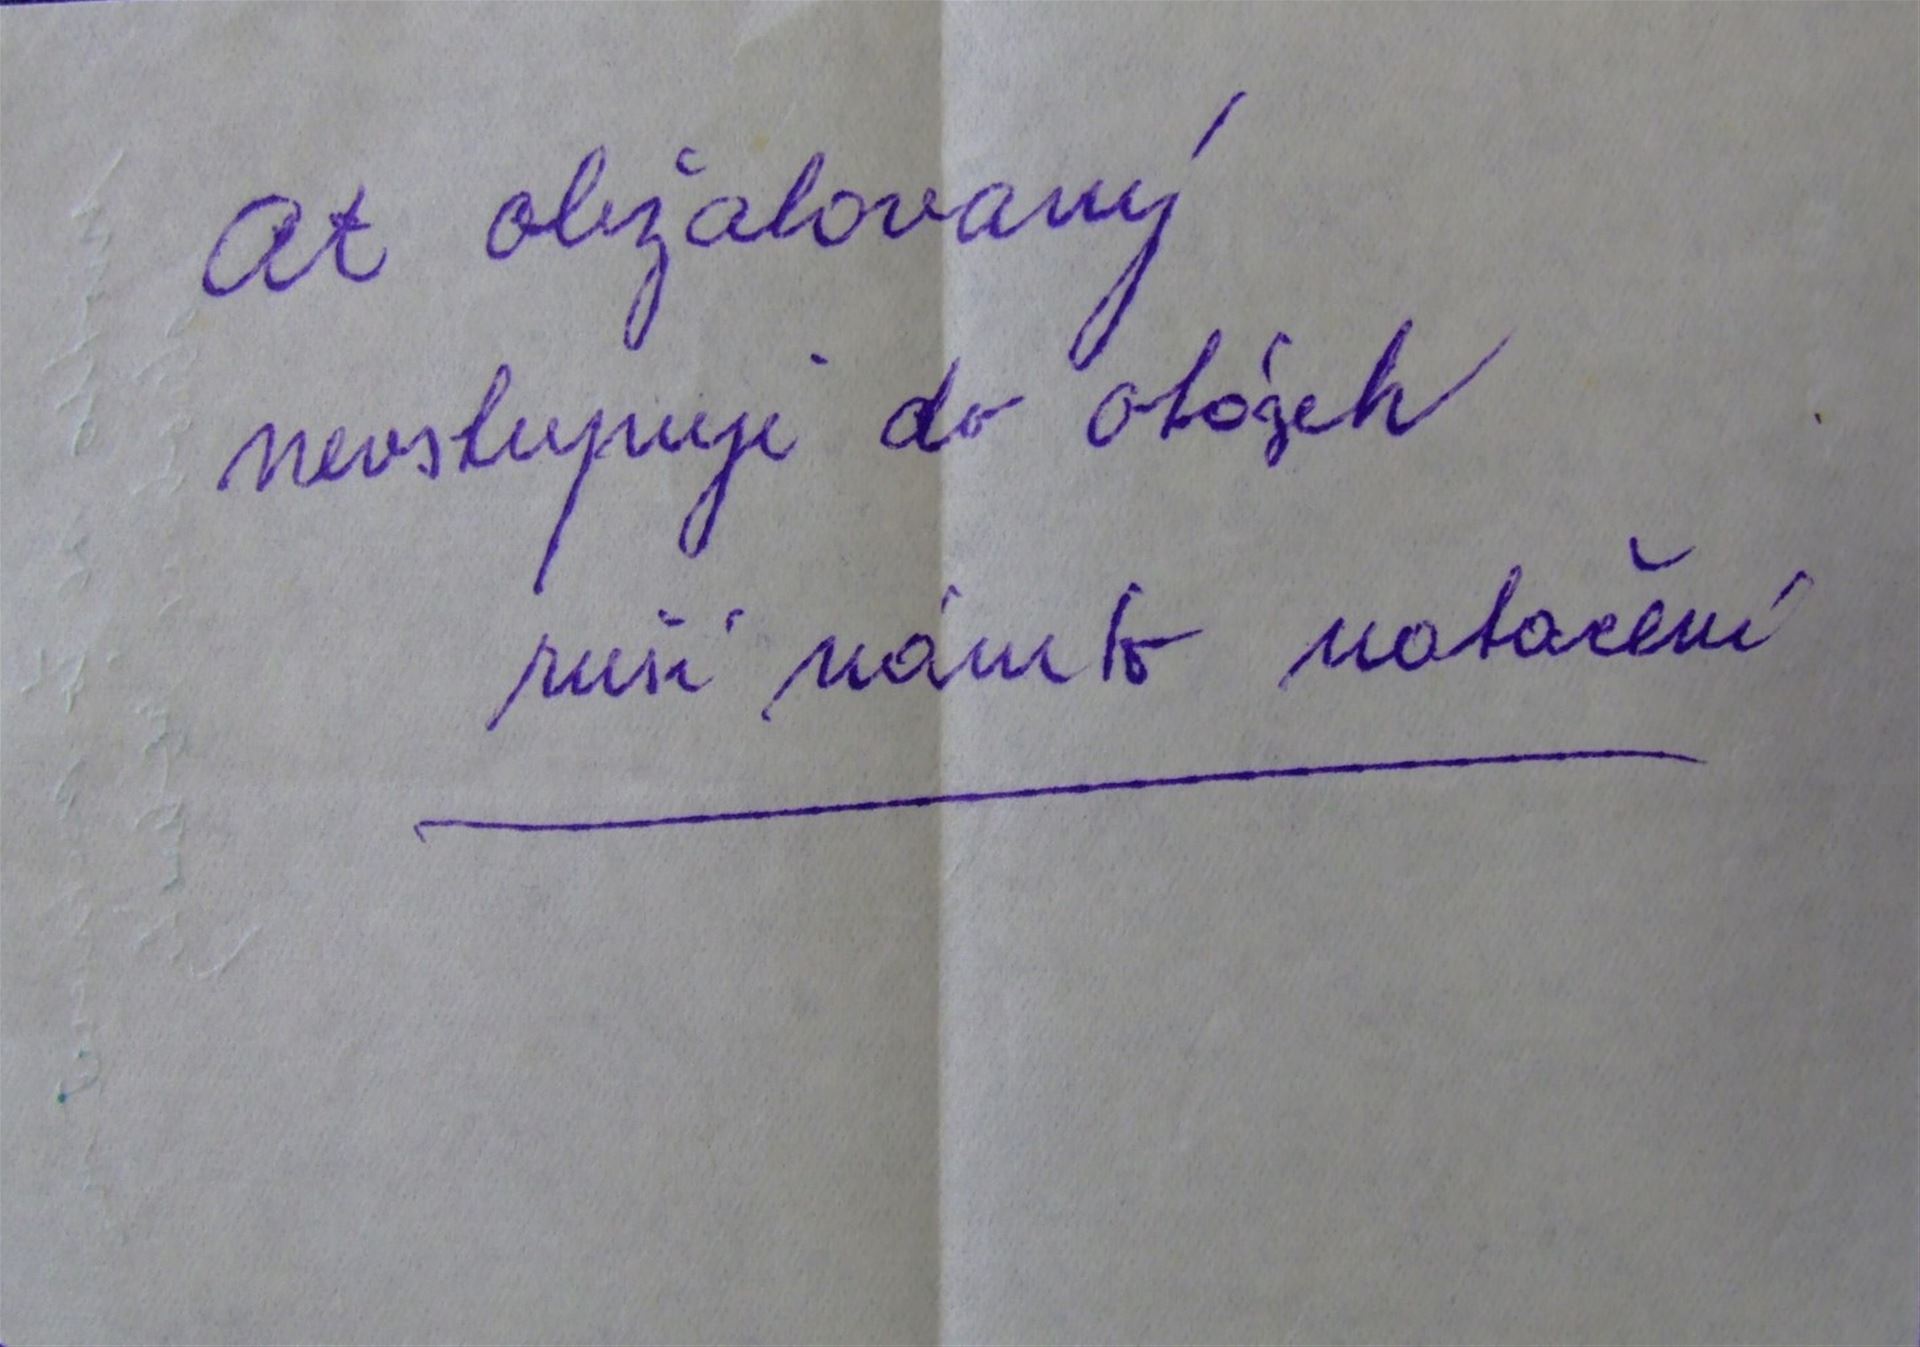 At obžalovaný
nevstupuje do otázek
ruší nám to natačení